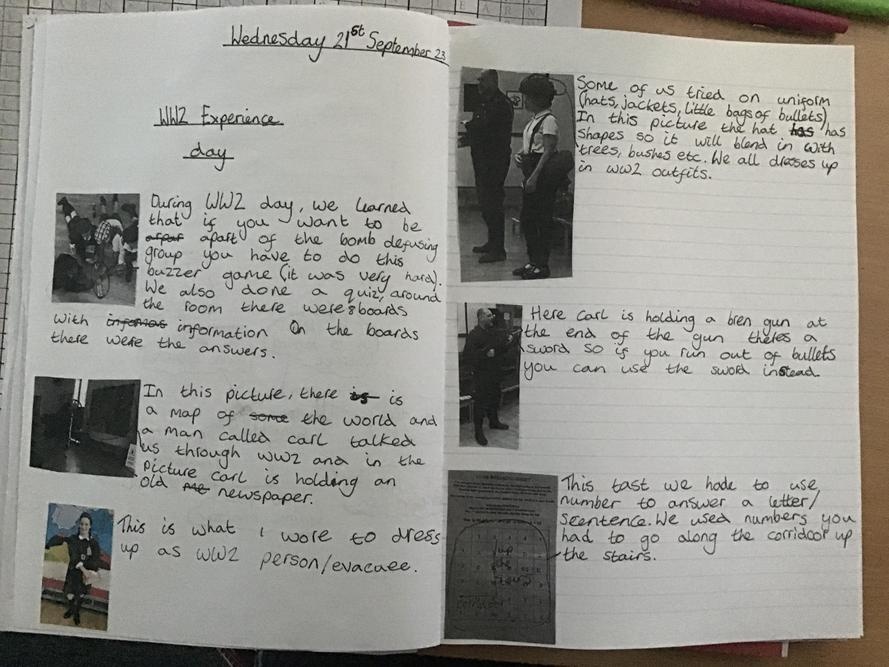 Wednesday 21st September 23
WW2 Experience
day
During WW2 day, we learned
that if you want to be
apart of the bomb defusing
group you have to do this
buzzer game (it was very hard).
We also done a quiz, around
the room there were 8 boards
with information On the boards
there were the answers.
In this picture, there is is
a map of some the world and
a man called carl talked
us through WW2 and in the
picture Carl is holding an
old newspaper.
This is what I wore to dress
up as WW2 person/evacuee.
Some of us tried on uniform
(hats, jackets, little bags of bullets)
In this picture the hat has has
shapes so it will blend in with
trees, bushes etc. We all dresses up
in WW2 outfits.
Here Carl is holding a bren gun at
the end of the gun theres a
sword so if you run out of bullets
you can use the sword instead.
This tast we hade to use
number to answer a letter/
Seentence. We used numbers you
had to go along the corridoor up
the stairs.
up
the
stairs